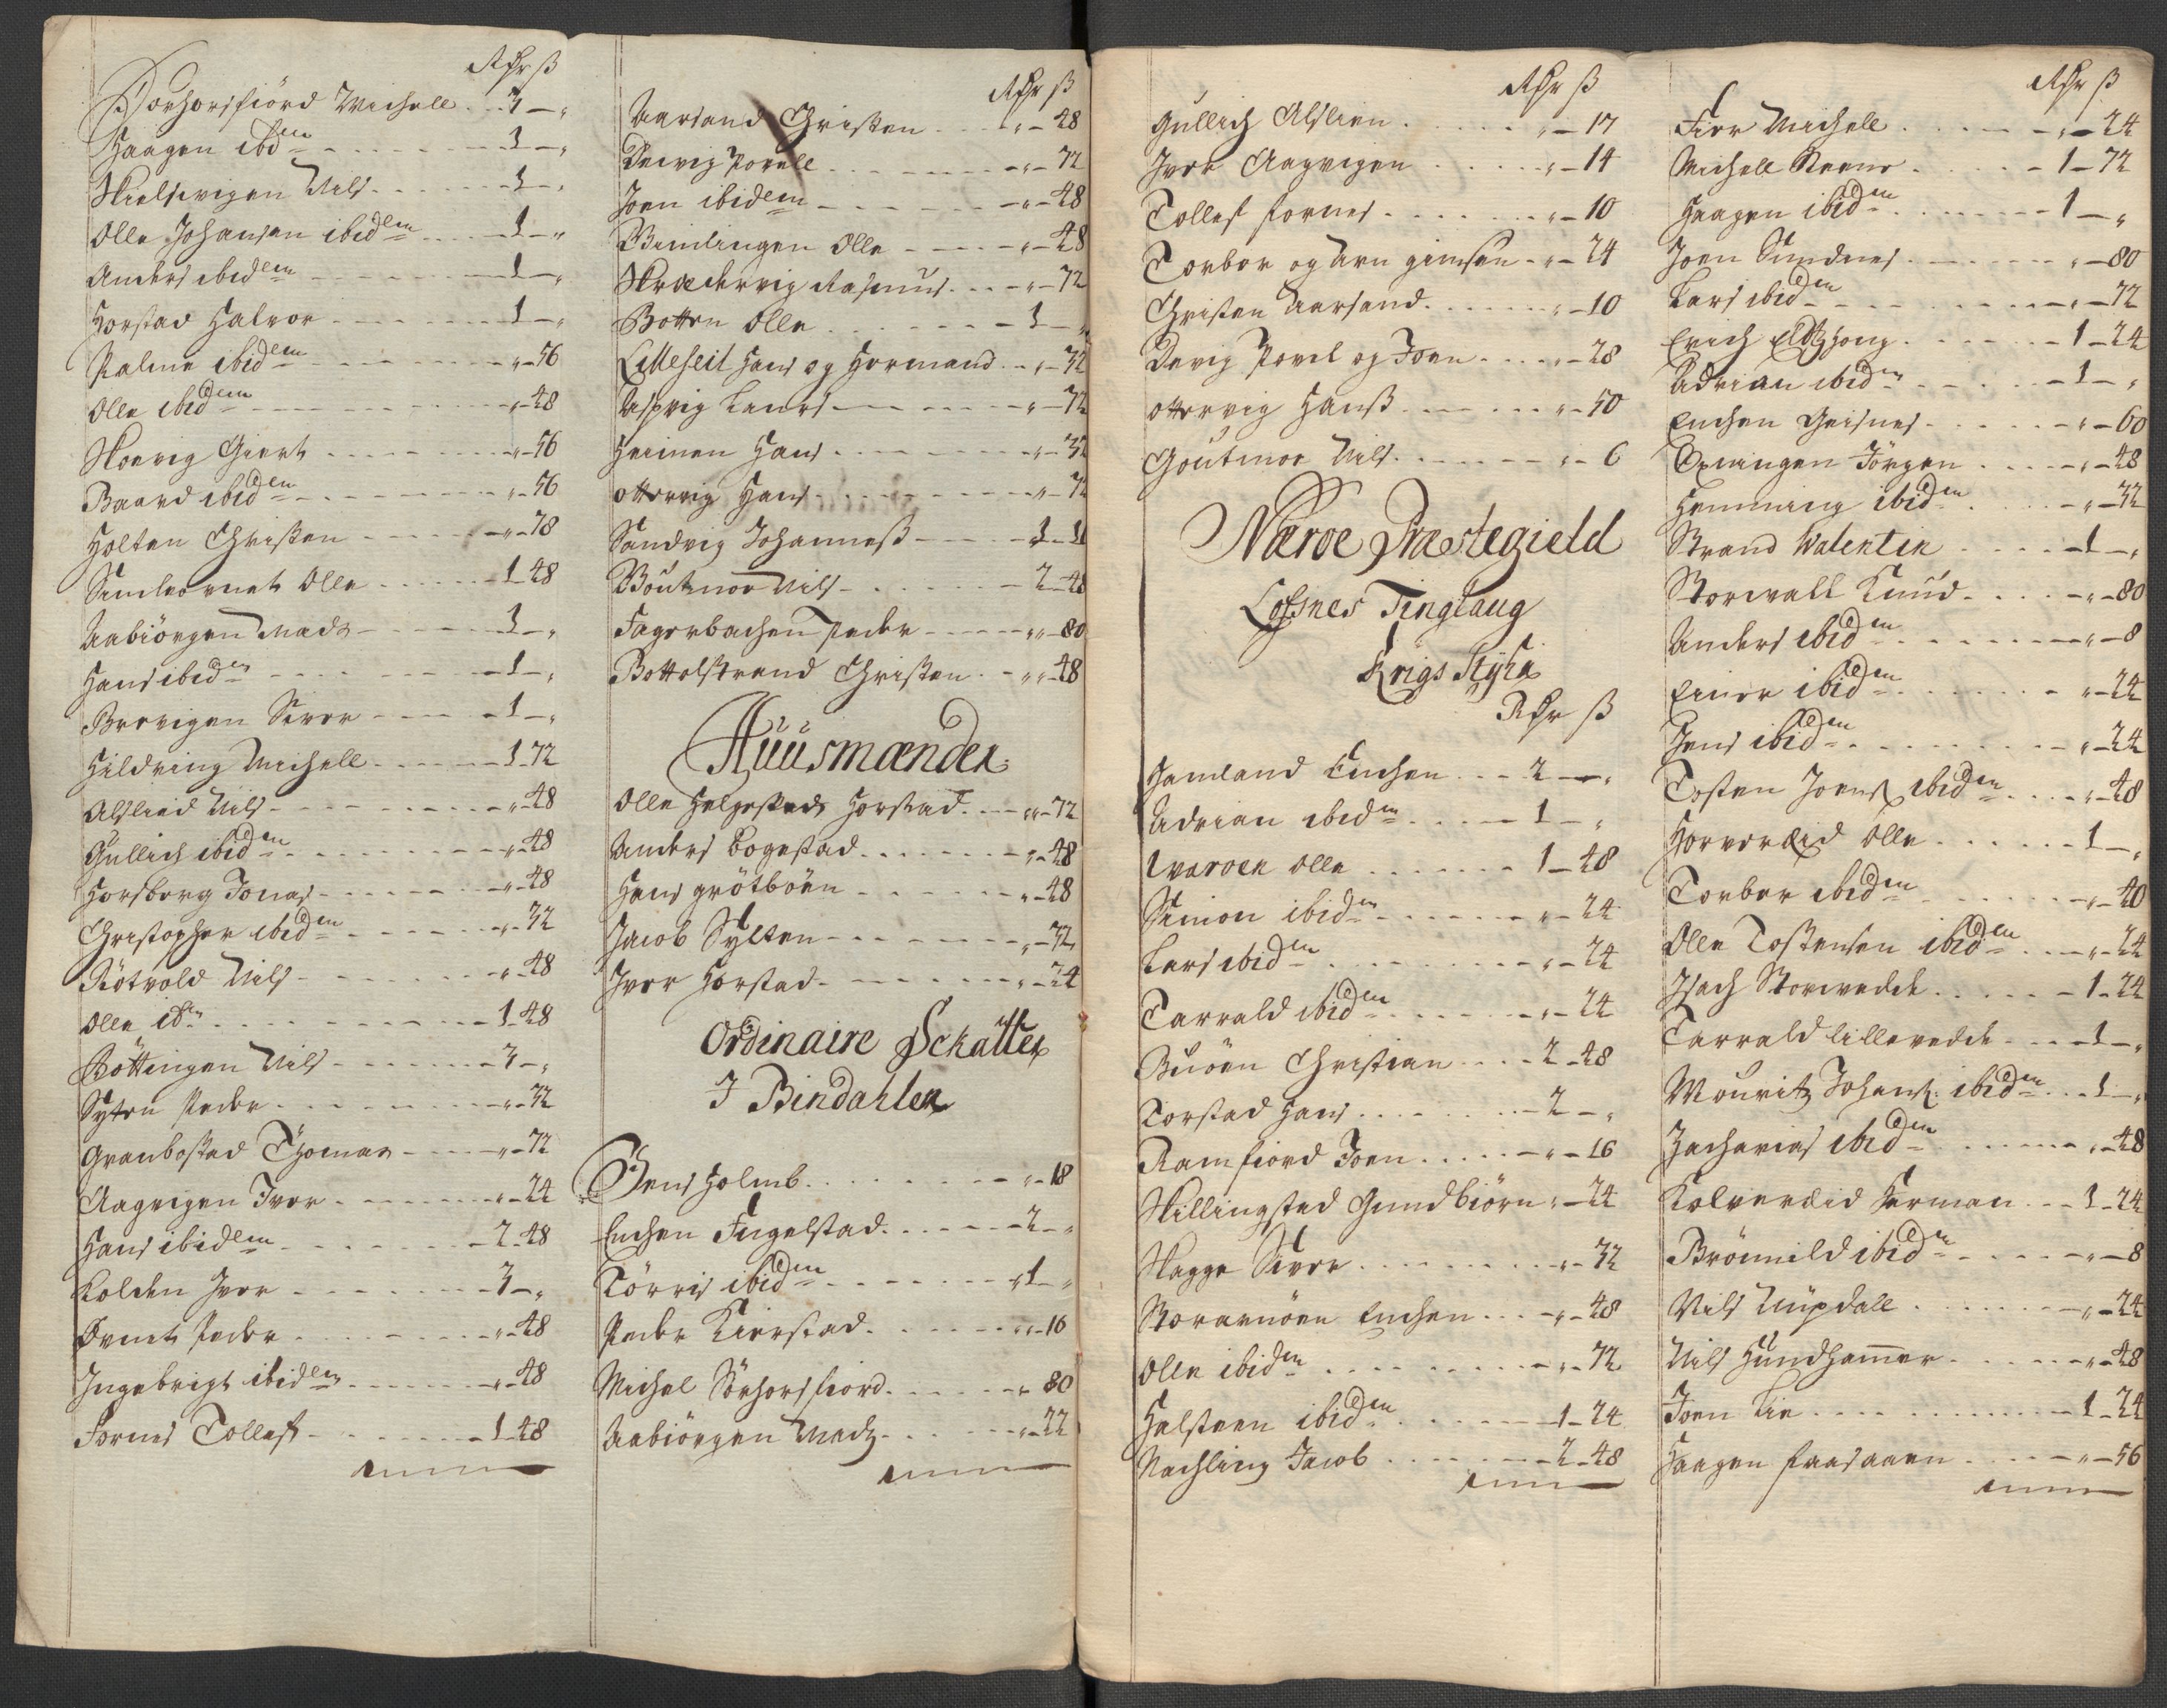 Rdr ß
Sørhorsfiörd Michell - - 3 - "
Haagen ibdm - - - 3 - "
Skielsvigen Nils - - - 3 - "
Olle Johansen ibidem - - - 1 - "
Anders ibidem - - - 1 - "
Horstad Halvor - - - 1 - "
Palme ibidem - - - " - 56
Olle ibidem - - - " - 48
Skoevig Giert - - - " - 56
Baard ibidm - - - " - 56
Holten Christen - - - " - 78
Simlevernet Olle - - - 1 - 48
Aabiörgen Mads - - - 3 - "
Hans ibidm - - - 1 - "
Brevigen Siver - - - 1 - "
Hildring Michell - - - 1 - 72
Alslied Nils - - - " - 48
Gullich ibidm - - - " - 48
Horsborg Jonas - - - " - 48
Christopher ibidm - - - " - 32
Rötvold Nils - - - " - 48
Olle idm - - - 1 - 48
Böttingen Nils - - - 3 - "
Sylten Peder - - - " - 32
Granbostad Thomas - - - " - 72
Aagvigen Iver - - - " - 24
Hans ibidem - - - 2 - 48
Kolden Iver - - - 3 - "
Ovnet Peder - - - " - 48
Ingebrigt ibidem - - - " - 48
Fornes Tollef - - - 1 - 48
Rdr ß
Aarsand Christen - - - " - 48
Deevig Povell - - - " - 72
Joen ibidem - - - " - 48
Bindingen Olle - - - " - 48
Skredervig Rasmus - - - " - 72
Botten Olle - - - 3 - "
Lilleheil Hans og Hormand - - " - 32
Aspvig Laurs - - - " - 72
Heimen Hans - - - " - 32
Ottervig Hans - - - " - 72
Sandvig Johanneß - - - 3 -
Böutmoe Nils - - - 2 - 48
Fagerbachen Peder - - - " - 80
Bottolstrand Christen - - " - 48
Huusmænder
Olle Helgestads Horstad - - " - 72
Anders Bogestad - - - " - 48
Hans grötböen - - - " - 48
Jacob Sylten - - - " - 32
Iver Horstad - - - " - 24
Ordinaire Schatter
I Bindahlen
Jens Holmb - - - " - 18
Enchen Fugelstad - - - 2 - "
Törris ibidm - - - 1 - "
Peder Kierstad - - - " - 16
Michel Sörhorsfiord - - - " 80
Aabiörgen Madz - - - " - 22
Rdr ß
Gullich Alslien - - - " - 17
Iver Aagvigen - - - " - 14
Tollef fornes - - - " - 10
Torber og Arn gimsen - " - 24
Christen Aarsand - - - " - 10
Devig Povel og Joen - - - " - 28
Ottervig Hanß - - - " - 50
Goutmoe Nils - - - " - 6
Næroe Præstegield
Lofsnes Tinglaug
Krigs Styhr
Rdr ß
Hamland Enchen - - - 2 - "
Adrian ibidm - - - 1 - "
Varoen Olle - - - 1 - 48
Simon ibidm - - - " - 24
Lars ibidm - - - " - 24
Tarrald ibidm - - - " - 24
Buöen Christian - - - 2 - 48
Torstad Hans - - - 2 - "
Ramfiord Joen - - - " - 16
Skillingstad Gundbiörn " - 24
Flagge Siver - - - " - 32
Storavnöen Enchen - - - " - 48
Olle ibidm - - - " - 72
Halsteen ibidm - - - 1 - 24
Nachling Jacob - - - 2 - 48
Rdr ß
Fier Michell - - - " - 24
Michell Steene - - - 1 - 72
Haagen ibidm - - - 1 - "
Joen Sundnes - - - " - 80
Lars ibidm - - - " - 72
Erich Eldhoug - - - 1 - 24
Adrian ibidm - - - 1 - "
Enchen Geisnes - - - " - 60
Opningen Jörgen - - - " - 48
Hemming ibidm - - - " - 32
Strand Valentin - - - 1 - "
Storvall Knud - - - " - 80
Anders ibidm - - - " - 8
Einer ibidm - - - " - 24
Jens ibidm - - - " - 24
Tosten Joens ibidm - - - " - 48
Horvereid Olle - - - 1 - "
Torber ibidm - - - " - 40
Olle Tostensen ibidm - - " - 24
Isach Storvedde - - - 1 - 24
Tarrald lillevedde - - - 1 - "
Mouritz Johans. ibidm - - 1 - "
Zacharias ibidm - - - " - 48
Kolvereid Herman - - - 1 - 24
Brönnild ibidm - - - " - 8
Nils Lüpdall - - - " - 24
Nils Hundhamer - - - " - 48
Joen Lie - - - 1 - 24
Haagen faasaaen - - - " - 56